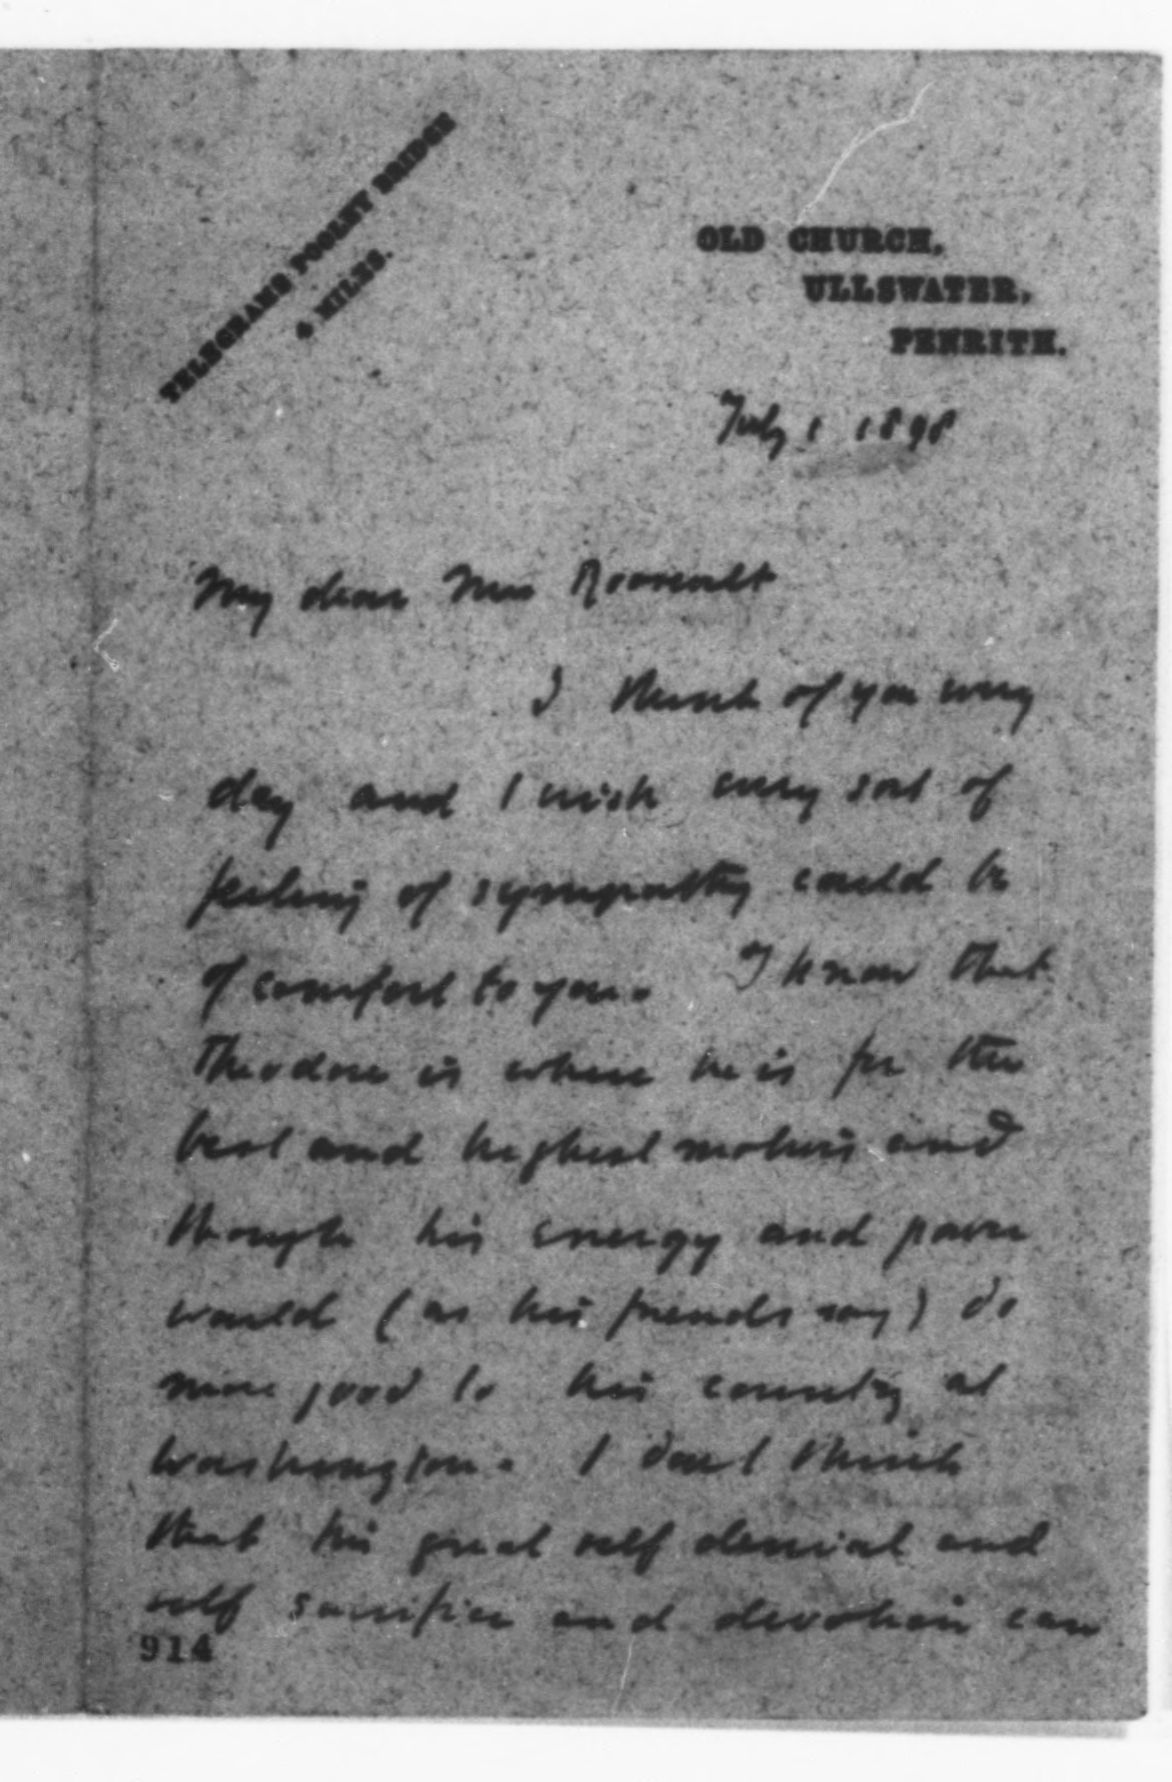 TELEGRAMS POOLEY BRIDGE
4 MILES.
OLD CHURCH,
ULLSWATER,
PENRITH.
July 1 1898
My dear Mrs Roosevelt
I think of you every
day and I wish every sort of
feeling of sympathy could be
of comfort to you. I know that
Theodore is where he is for the
best and highest motives and
though his energy and power
would (as his friends say) do
more good to his country at
Washington. I don't think
that his great self denial and
self sacrifice and devotion can
914